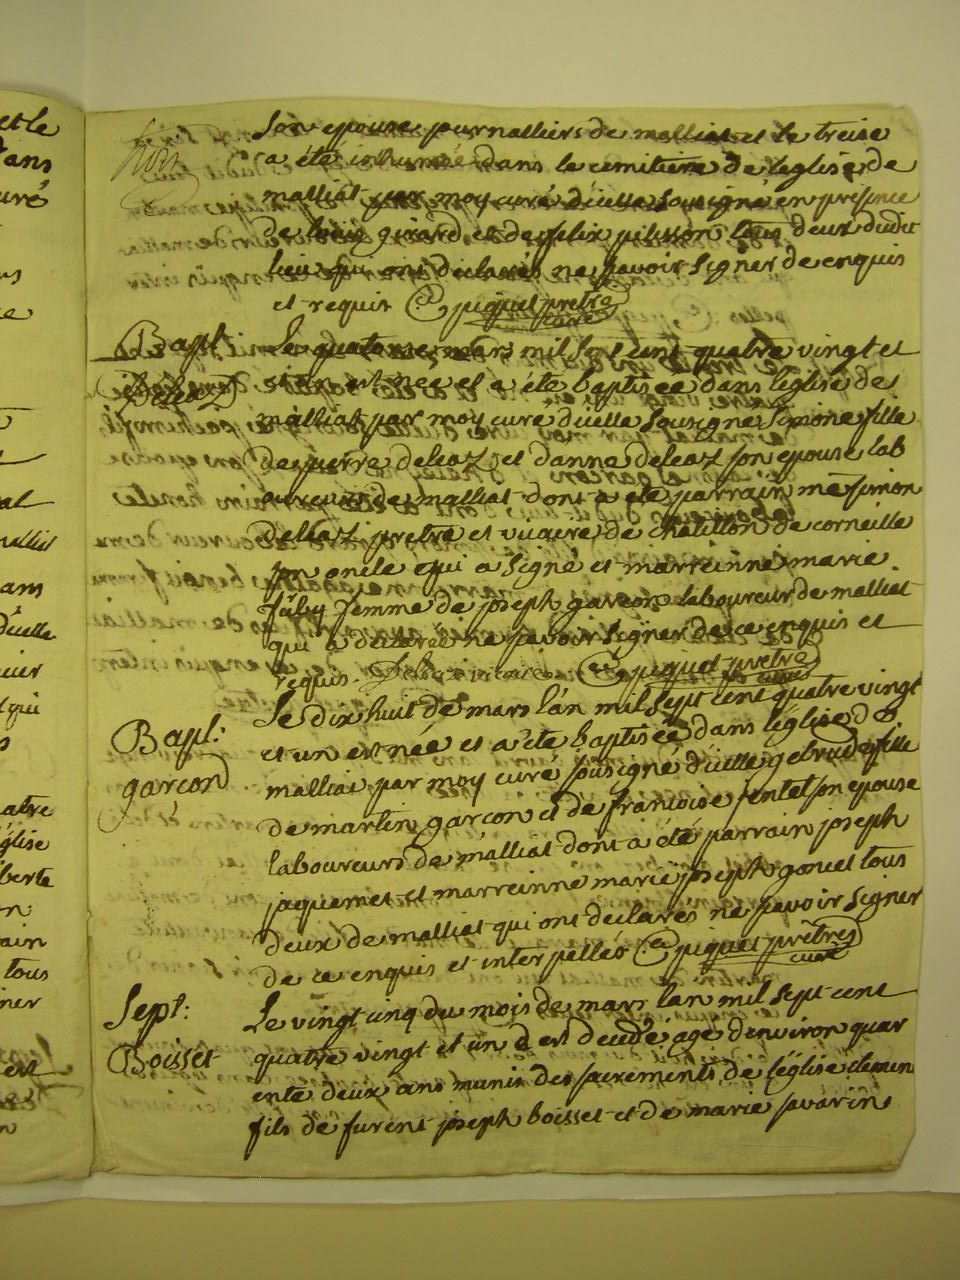 son epouse journalliers de malliat et le treise
a été inhumée dans le cemitiere de leglise de
malliat par moy curé d'icelle sousigné en présence
de louis girard et de felix pilisson tous deux dudit
lieu qui ont déclarés ne savoir signer de ce enquis
et requis piquet prêtre
curé
Bapt
Deleaz
Le quatorse mars mil sept cent quatre vingt et
et un est née et a été baptisée dans léglise de
malliat par moy curé d'icelle sousigné Simone fille
de pierre deleaz et danne deleaz son epouse lab
oureurs de malliat dont a été parrain me simon
deleaz pretre et vicaire de chatillon de corneille
son oncle qui a signé et marreinne marie
femme de joseph garcon laboureur de malliat
qui a déclarée ne savoir signer de ce enquis et
requis. Deleaz vicaire piquet prêtre
curé
Bapt:
garcon
Le dix huit de mars l'an mil sept cent quatre vingt
et un est née et a été baptisée dans léglise de
malliat par moy curé sousigné d'icelle gebrude fille
de martin garcon et de francoise jentet son epouse
laboureurs de malliat dont a été parrain joseph
jaquemet et marreinne marie joseph gonet tous
deux de malliat qui ont déclarés ne savoir signer
de ce enquis et interpellés piquet prêtre
curé
Sept:
Boisset
Le vingt cinq du mois de mars lan mil sept cent
quatre vingt et un est decedé agé denviron quar
ente deux ans munis des sacrements de l'église clemen
fils de furent joseph boisset et de marie savarin